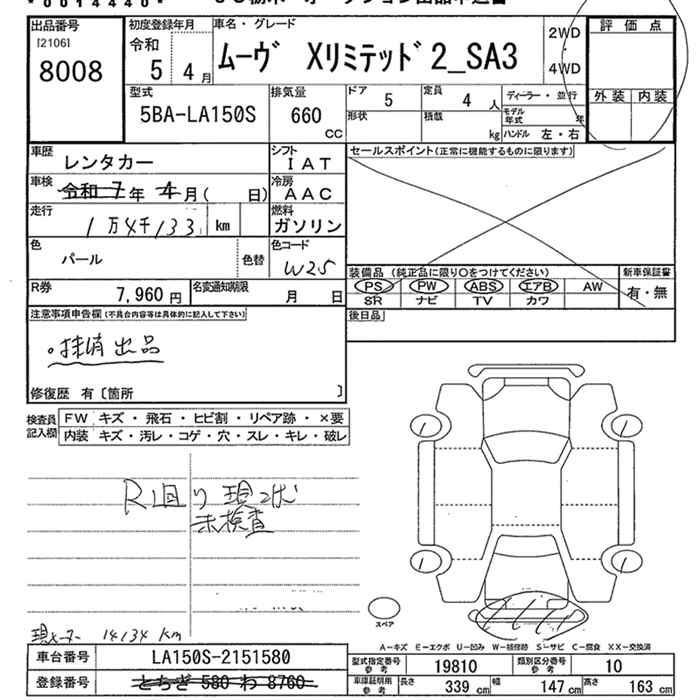 *0014440*
出品番号
[2106]
8008
初度登録年月
令和
5 4 月
車名・グレード
ムーヴ Xリミテッド2_SA3
2WD
4WD
評価点
外装 内装
型式
5BA-LA150S
排気量
660
CC
ドア
5
定員
4 人
形状
積載
kg
ディーラー・並行
モデル年式 年
ハンドル 左・右
車歴
レンタカー
シフト
IAT
車検
令和 7 年 4 月( 日)
冷房
AAC
走行
1万4千133 km
燃料
ガソリン
色
パール
色替
色コード
W25
セールスポイント(正常に機能するものに限ります)
装備品(純正品に限り○をつけてください)
PS PW ABS エアB AW
SR ナビ TV カワ
新車保証書
有・無
後日品
R券
7,960 円
名変通知期限
月 日
注意事項申告欄(不具合内容等は具体的に記入して下さい)
。抹消出品
修復歴 有〔箇所 〕
検査員記入欄
FW キズ・飛石・ヒビ割・リペア跡・×要
内装 キズ・汚レ・コゲ・穴・スレ・キレ・破レ
R回り現状
未検査
現メーター 14134 km
スペア
A-キズ E-エクボ U-凹み W-補修跡 S-サビ C-腐食 XX-交換済
車台番号
LA150S-2151580
登録番号
とちぎ 580 わ 8760
型式指定番号
参考
19810
類別区分番号
参考
10
車庫証明用
参考
長さ
339 cm
幅
147 cm
高さ
163 cm